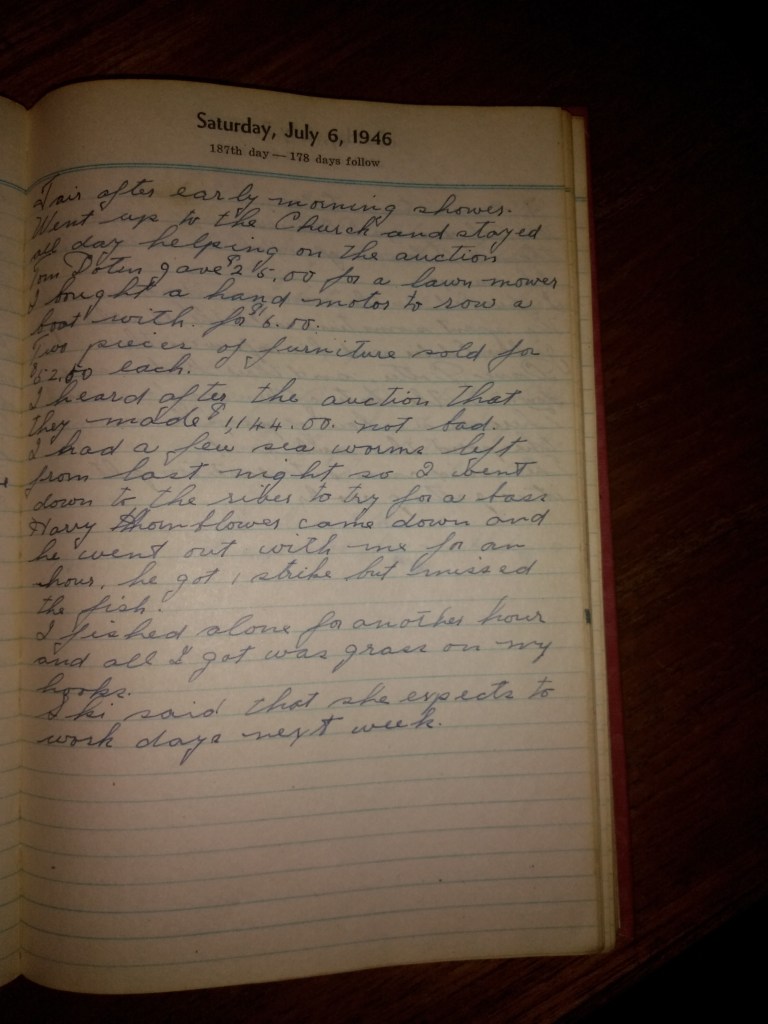 Saturday, July 6, 1946
187th day — 178 days follow
Fair after early morning shower.
Went up to the Church and stayed
all day helping on the auction
Tom gave $25.00 for a lawn mower
I bought a hand motor to row a
boat with. for $6.00.
Two pieces of furniture sold for
$52.50 each.
I heard after the auction that
they made $1,144.00. not bad.
I had a few sea worms left
from last night so I went
down to the river to try for a bass
Harry Thornblower came down and
he went out with me for an
hour. he got 1 strike but missed
the fish.
I fished alone for another hour
and all I got was grass on my
hooks.
Ski said that she expects to
work days next week.